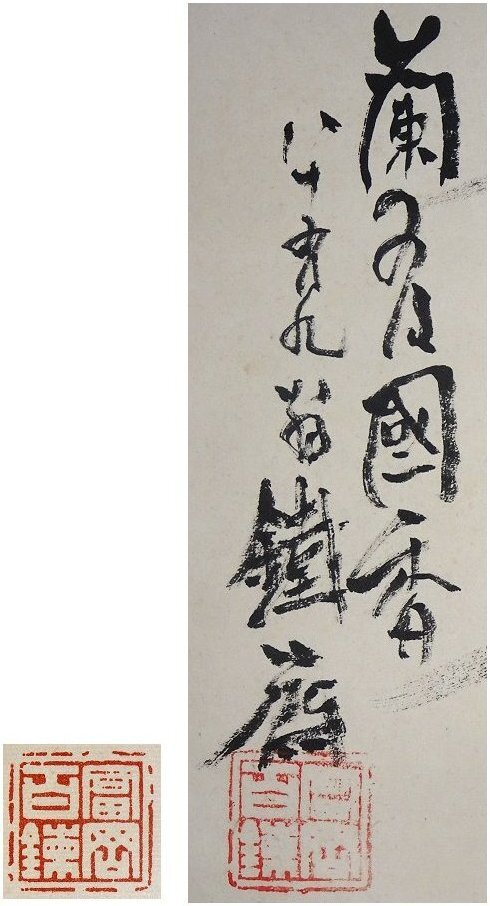 蘭有國香
八十有九翁鐵斎
富岡
百錬
富岡
百錬